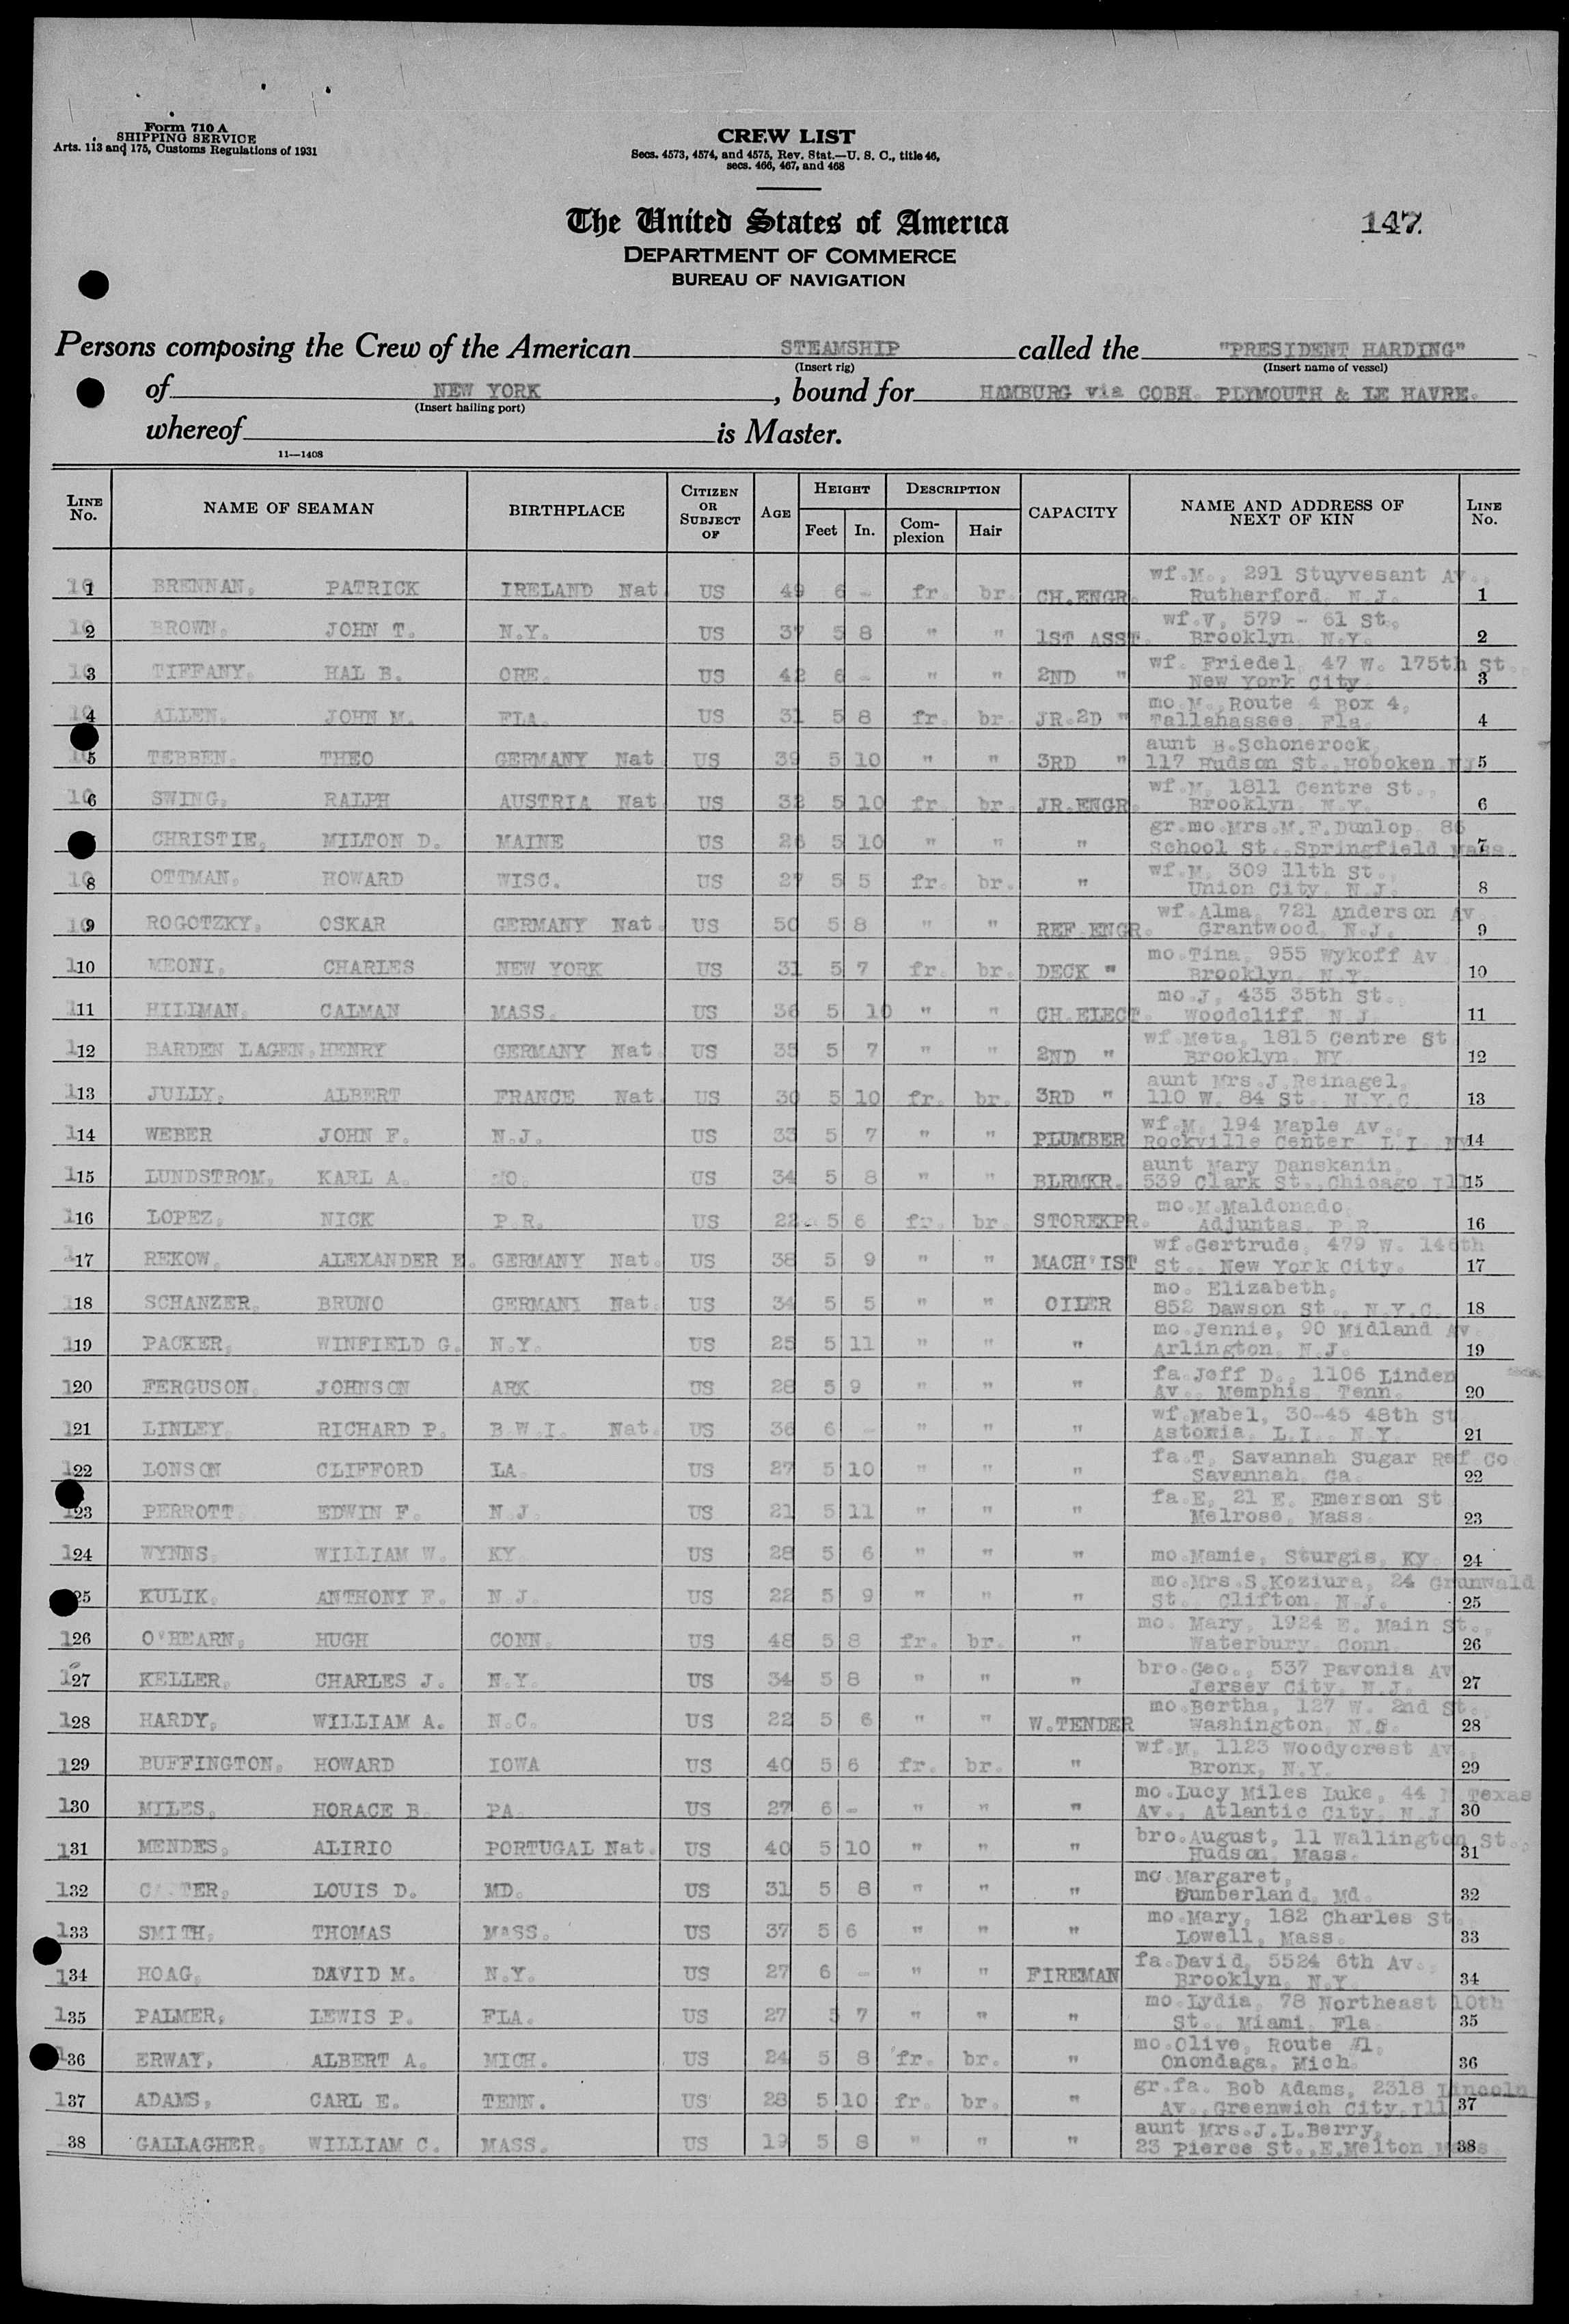 Form 710 A
SHIPPING SERVICE
Arts. 113 and 175, Customs Regulations of 1931
CREW LIST
Secs. 4573, 4574, and 4575, Rev. Stat.—U. S. C., title 46,
secs. 466, 467, and 468
The United States of America
147.
DEPARTMENT OF COMMERCE
BUREAU OF NAVIGATION
Persons composing the Crew of the American STEAMSHIP called the "PRESIDENT HARDING"
(Insert rig) (Insert name of vessel)
of NEW YORK, bound for HAMBURG via COBH. PLYMOUTH & LE HAVRE.
(Insert hailing port)
whereof is Master.
11—1408
LINE No. NAME OF SEAMAN BIRTHPLACE CITIZEN OR SUBJECT OF AGE HEIGHT Feet In. DESCRIPTION Complexion Hair CAPACITY NAME AND ADDRESS OF NEXT OF KIN LINE No.
1 BRENNAN, PATRICK IRELAND Nat. US 49 6 - fr. br. CH.ENGR. wf.M., 291 Stuyvesant Av., Rutherford, N.J. 1
2 BROWN, JOHN T. N.Y. US 37 5 8 " " 1ST ASST. wf.V, 579 - 61 St., Brooklyn, N.Y. 2
3 TIFFANY, HAL B. ORE. US 42 6 - " " 2ND " wf. Friedel, 47 W. 175th St. New York City 3
4 ALLEN, JOHN M. FLA. US 31 5 8 fr. br. JR.2D " mo.M., Route 4 Box 4, Tallahassee, Fla. 4
5 TEBBEN, THEO GERMANY Nat US 39 5 10 " " 3RD " aunt B.Schonerock, 117 Hudson St., Hoboken NJ 5
6 SWING, RALPH AUSTRIA Nat US 32 5 10 fr. br. JR.ENGR. wf.M, 1811 Centre St., Brooklyn, N.Y. 6
CHRISTIE, MILTON D. MAINE US 26 5 10 " " " gr.mo.Mrs.M.F.Dunlop, 86 School St., Springfield Mass. 7
8 OTTMAN, HOWARD WISC. US 27 5 5 fr. br. " wf.M, 309 11th St., Union City, N.J. 8
9 ROGOTZKY, OSKAR GERMANY Nat. US 50 5 8 " " REF.ENGR. wf.Alma, 721 Anderson Av. Grantwood, N.J. 9
110 MEONI, CHARLES NEW YORK US 31 5 7 fr. br. DECK " mo.Tina, 955 Wykoff Av Brooklyn, N.Y. 10
111 HILLMAN, CALMAN MASS. US 36 5 10 " " CH.ELECT. mo.J, 435 35th St., Woodcliff, N.J. 11
112 BARDEN LAGEN, HENRY GERMANY Nat. US 35 5 7 " " 2ND " wf.Meta, 1815 Centre St Brooklyn, NY 12
113 JULLY, ALBERT FRANCE Nat. US 30 5 10 fr. br. 3RD " aunt Mrs.J.Reinagel, 110 W. 84 St., N.Y.C. 13
114 WEBER JOHN F. N.J. US 33 5 7 " " PLUMBER wf.M, 194 Maple Av., Rockville Center L.I. NY 14
115 LUNDSTROM, KARL A. MO. US 34 5 8 " " BLRMKR. aunt Mary Danskanin, 539 Clark St., Chicago Ill 15
116 LOPEZ, NICK P.R. US 22 5 6 fr. br. STOREKPR. mo.M.Maldonado, Adjuntas, P.R. 16
117 REKOW, ALEXANDER E. GERMANY Nat. US 38 5 9 " " MACH'IST wf.Gertrude, 479 W. 146th St., New York City. 17
118 SCHANZER, BRUNO GERMANY Nat. US 34 5 5 " " OILER mo. Elizabeth, 852 Dawson St., N.Y.C. 18
119 PACKER, WINFIELD G. N.Y. US 25 5 11 " " " mo.Jennie, 90 Midland Av Arlington, N.J. 19
120 FERGUSON, JOHNSON ARK. US 28 5 9 " " " fa.Jeff D., 1106 Linden Av., Memphis, Tenn. 20
121 LINLEY, RICHARD P. B.W.I. Nat. US 36 6 - " " " wf.Mabel, 30-45 48th St Astoria, L.I., N.Y. 21
122 LONSON CLIFFORD LA. US 27 5 10 " " " fa.T, Savannah Sugar Ref.Co Savannah, Ga. 22
123 PERROTT, EDWIN F. N.J. US 21 5 11 " " " fa.E, 21 E. Emerson St Melrose, Mass. 23
124 WYNNS, WILLIAM W. KY. US 28 5 6 " " " mo.Mamie, Sturgis, Ky. 24
25 KULIK, ANTHONY F. N.J. US 22 5 9 " " " mo.Mrs.S.Koziura, 24 Grunwald St., Clifton, N.J. 25
126 O'HEARN, HUGH CONN. US 48 5 8 fr. br. " mo. Mary, 1924 E. Main St., Waterbury, Conn. 26
127 KELLER, CHARLES J. N.Y. US 34 5 8 " " " bro.Geo., 537 Pavonia Av Jersey City, N.J. 27
128 HARDY, WILLIAM A. N.C. US 22 5 6 " " W.TENDER mo.Bertha, 127 W. 2nd St., Washington, N. 28
129 BUFFINGTON, HOWARD IOWA US 40 5 6 fr. br. " wf.M, 1123 Woodycrest Av., Bronx, N.Y. 29
130 MILES, HORACE B. PA. US 27 6 - " " " mo.Lucy Miles Luke, 44 Texas Av., Atlantic City, N.J 30
131 MENDES, ALIRIO PORTUGAL Nat. US 40 5 10 " " " bro.August, 11 Wallington St., Hudson, Mass. 31
132 LOUIS D. MD. US 31 5 8 " " " mo.Margaret, Cumberland, Md. 32
133 SMITH, THOMAS MASS. US 37 5 6 " " " mo.Mary, 182 Charles St. Lowell, Mass. 33
134 HOAG, DAVID M. N.Y. US 27 6 - " " FIREMAN fa.David, 5524 6th Av., Brooklyn, N.Y. 34
135 PALMER, LEWIS P. FLA. US 27 5 7 " " " mo.Lydia, 78 Northeast 10th St., Miami, Fla 35
36 ERWAY, ALBERT A. MICH. US 24 5 8 fr. br. " mo.Olive, Route #1, Onondaga, Mich. 36
137 ADAMS, CARL E. TENN. US 28 5 10 fr. br. " gr.fa. Bob Adams, 2318 Lincoln Av., Greenwich City, Ill 37
38 GALLAGHER, WILLIAM C. MASS. US 19 5 8 " " " aunt Mrs.J.L.Berry, 23 Pierce St., E.Melton Mass. 38